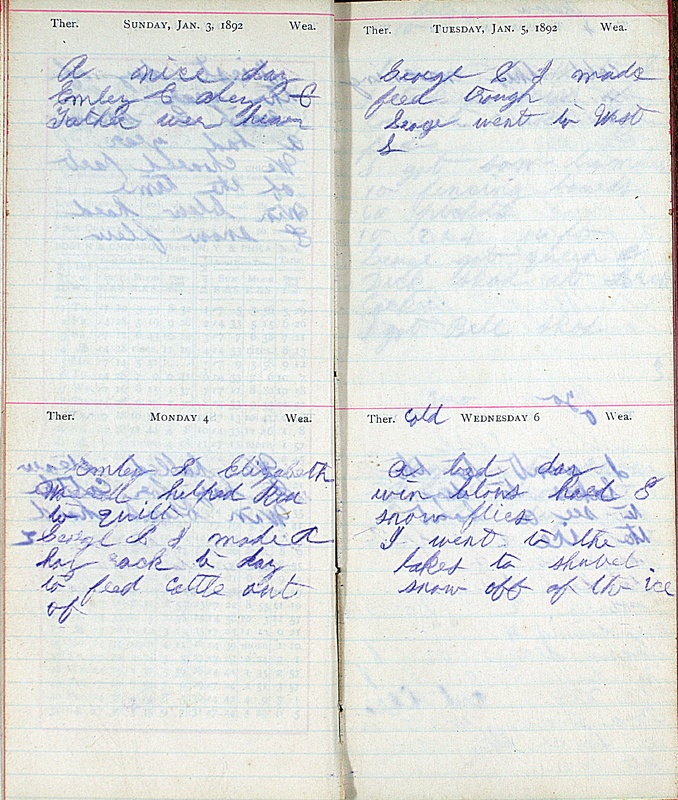 Ther. SUNDAY, JAN. 3, 1892 Wea.
A nice day
Emley &
Father wer
Ther. MONDAY 4 Wea.
Emley S. Elizabeth
helped
to quilt
George S & I made a
hay rack to day
to feed cattle out
of
Ther. TUESDAY, JAN. 5, 1892 Wea.
George S & I made
feed trough
George went to West
S
Ther. Cold WEDNESDAY 6 Wea.
A bad day
win blows hard &
snow flies
I went to the
lakes to shovel
snow off of the ice